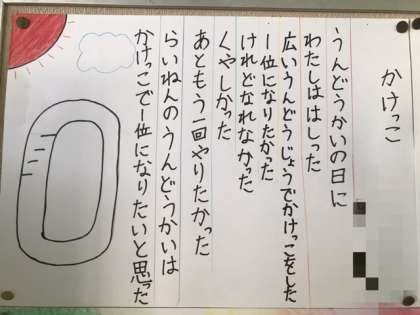 かけっこ
うんどうかいの日に
わたしははしった
広いうんどうじょうでかけっこをした
一位になりたかった
けれどなれなかった
くやしかった
あともう一回やりたかった
らいねんのうんどうかいは
かけっこで一位になりたいと思った